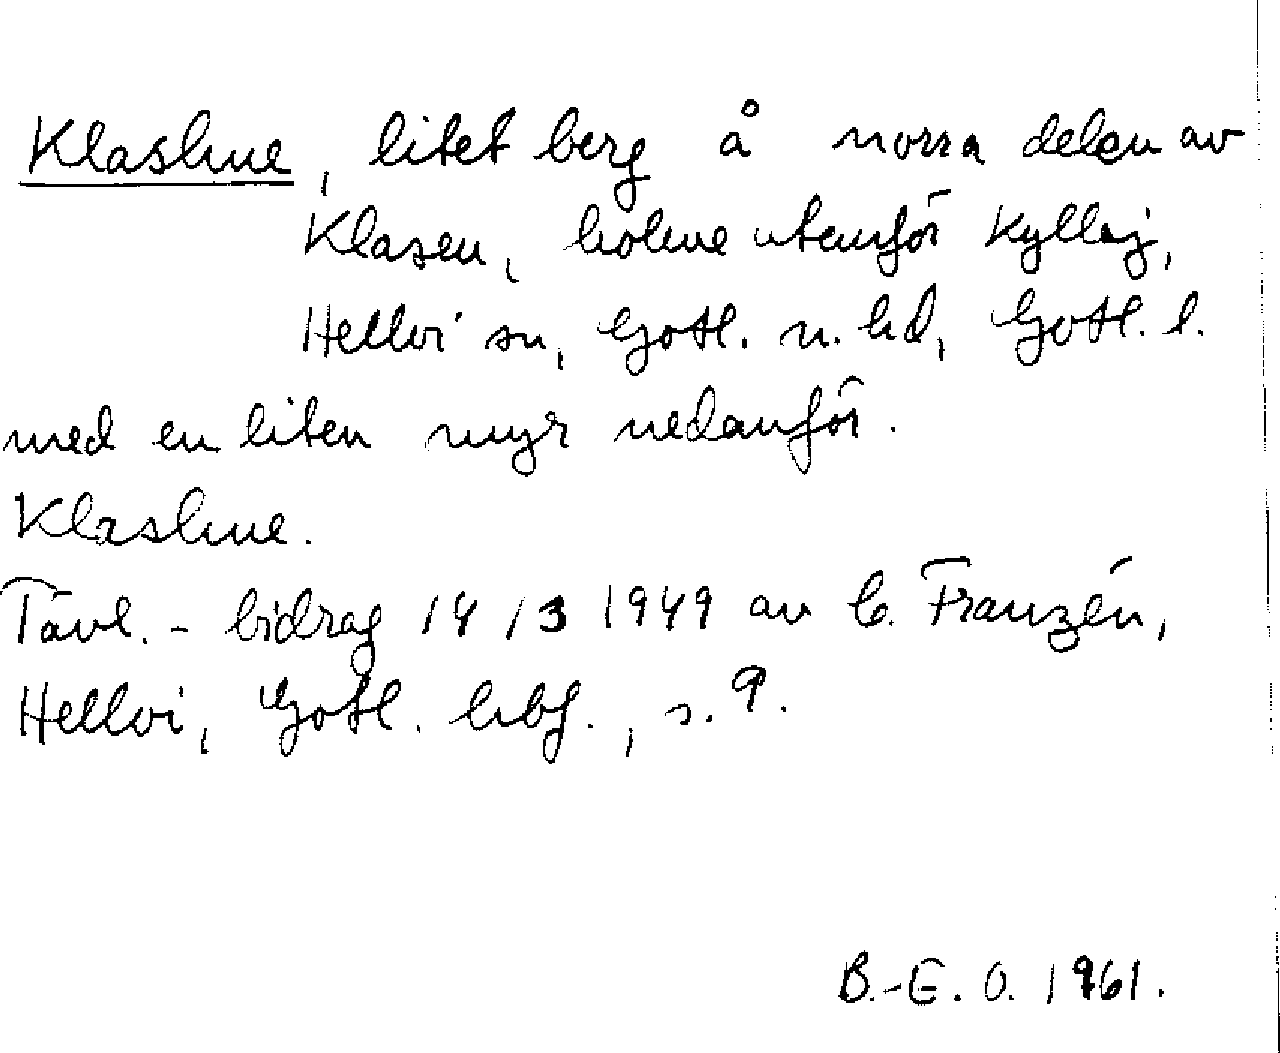 Klaslme, litet berg å norra delen av
Klasen, holme utanför Kyllaj,
Hellvi sn, Gotl. n. hd, Gotl. l.
med en liten myr nedanför.
Klaslme.
Tävl.-bidrag 14/3 1949 av C. Franzén,
Hellvi, Gotl. hbf., s. 9.
B.-E. O. 1961.